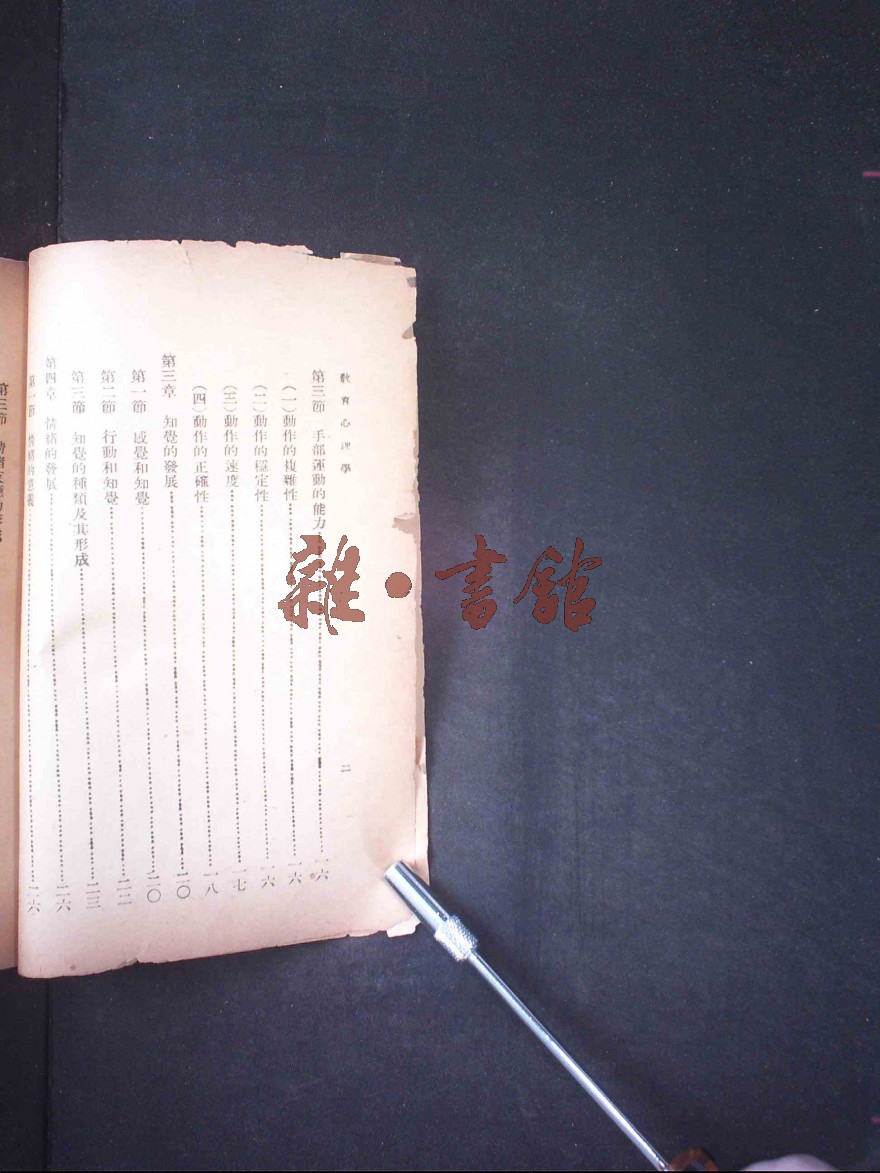 教育心理學
二
第三節 手部運動的能力……一六
(一)動作的複雜性……一六
(二)動作的穩定性……一六
(三)動作的速度……一七
(四)動作的正確性……一八
第三章 知覺的發展……二〇
第一節 感覺和知覺……二〇
第二節 行動和知覺……二二
第三節 知覺的種類及其形成……二三
第四章 情緒的發展……二六
第一節 情緒的意義……二六
第三節
雜·書館